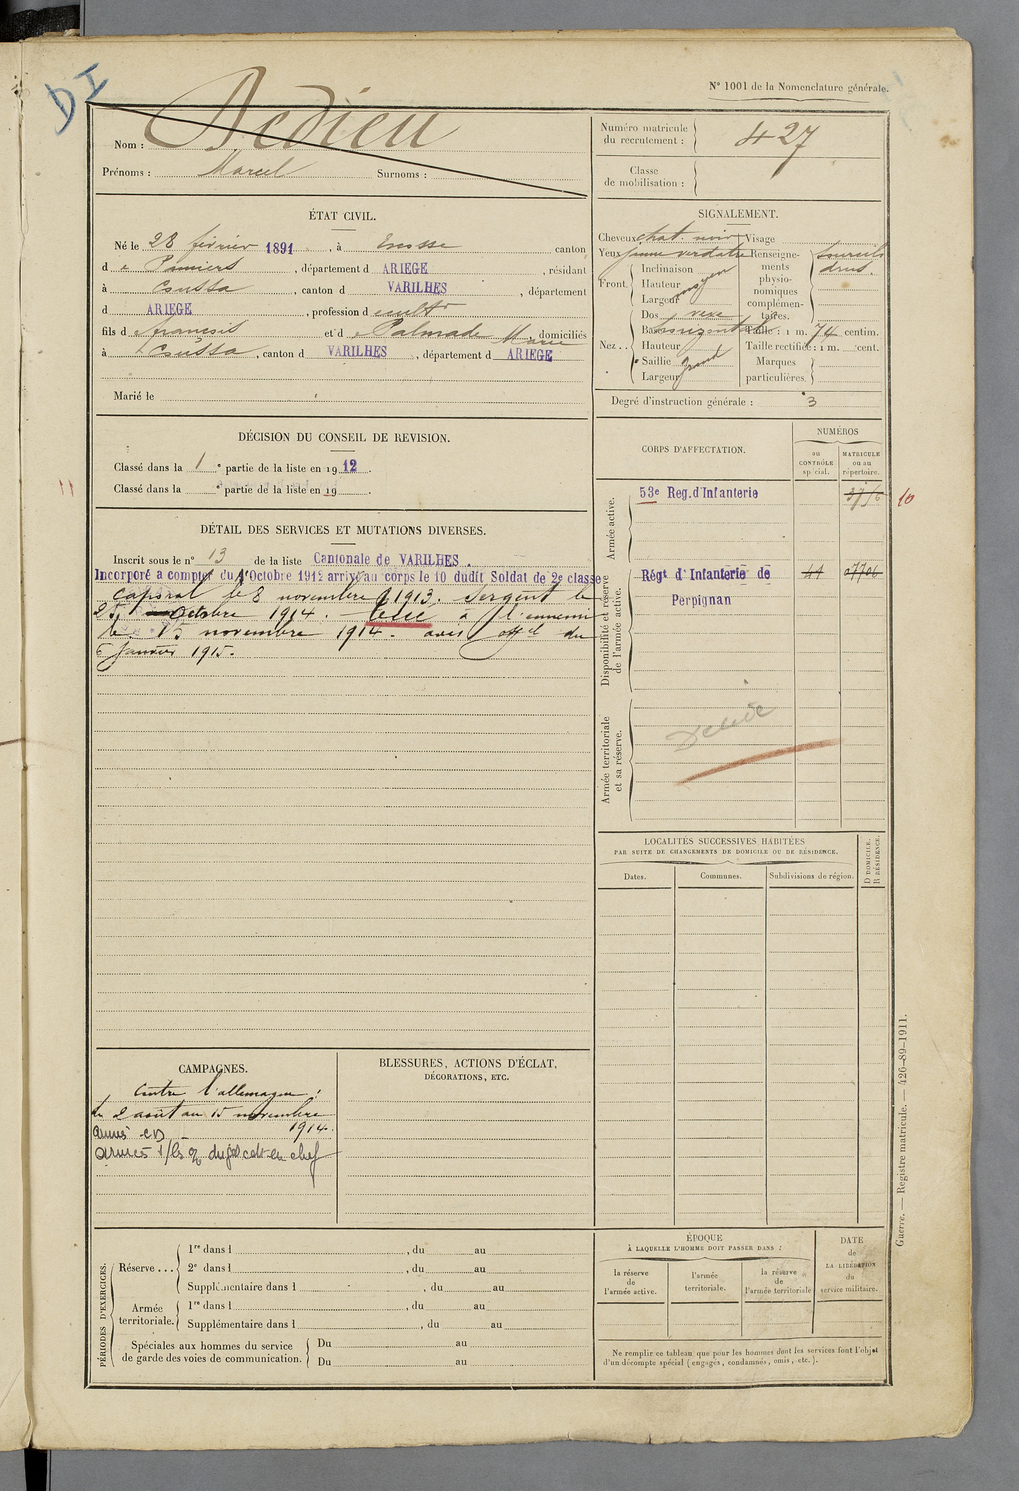 DI
N° 1001 de la Nomenclature générale.
Nom : Dedieu
Prénoms : Marcel Surnoms :
Numéro matricule du recrutement : 427
Classe de mobilisation :
ÉTAT CIVIL.
Né le 28 février 1891, à Escosse canton
de Pamiers, département d ARIEGE, résidant
à Coussa, canton d VARILHES, département
d ARIEGE, profession d cultr
fils de francois et de Palmade Marie domiciliés
à Coussa, canton d VARILHES, département d ARIEGE
Marié le
SIGNALEMENT.
Cheveux chat. noir Visage
Yeux jaune verdatre
Renseignements physionomiques complémentaires. sourcils drus.
Front. Inclinaison
Hauteur moyen
Largeur
Nez.. Dos vexe
Base horizontale
Hauteur
Saillie grand
Largeur
Taille : 1 m. 74 centim.
Taille rectifiée : 1 m. cent.
Marques particulières.
Degré d'instruction générale : 3
DÉCISION DU CONSEIL DE REVISION.
Classé dans la 1 e partie de la liste en 1912.
Classé dans la e partie de la liste en 19 .
DÉTAIL DES SERVICES ET MUTATIONS DIVERSES.
Inscrit sous le n° 13 de la liste Cantonale de VARILHES.
Incorporé a compter du 1er Octobre 1912 arrivé au corps le 10 dudit Soldat de 2e classe
Caporal le 8 novembre 1913. Sergent le
25 Octobre 1914. Tué à l'ennemi
le 15 novembre 1914. avis offel du
6 Janvier 1915.
CORPS D'AFFECTATION.
NUMÉROS
au CONTRÔLE spécial.
MATRICULE ou au répertoire.
Armée active.
53e Reg. d'Infanterie
10
11
Disponibilité et réserve de l'armée active.
Régt d'Infanterie de 44
Perpignan
Armée territoriale et sa réserve.
Décédé
LOCALITÉS SUCCESSIVES HABITÉES
PAR SUITE DE CHANGEMENTS DE DOMICILE OU DE RÉSIDENCE.
Dates. Communes. Subdivisions de région. D DOMICILE. R RÉSIDENCE.
CAMPAGNES.
Contre l'allemagne :
du 2 août au 15 novembre
1914.
BLESSURES, ACTIONS D'ÉCLAT,
DÉCORATIONS, ETC.
PÉRIODES D'EXERCICES.
Réserve... 1re dans l , du au
2e dans l , du au
Supplémentaire dans l , du au
Armée territoriale. 1re dans l , du au
Supplémentaire dans l , du au
Spéciales aux hommes du service de garde des voies de communication. Du au
Du au
ÉPOQUE
À LAQUELLE L'HOMME DOIT PASSER DANS :
la réserve de l'armée active.
l'armée territoriale.
la réserve de l'armée territoriale
DATE de LA LIBÉRATION du service militaire.
Ne remplir ce tableau que pour les hommes dont les services font l'objet
d'un décompte spécial (engagés, condamnés, omis, etc.).
Guerre. — Registre matricule. — 426-89-1911.